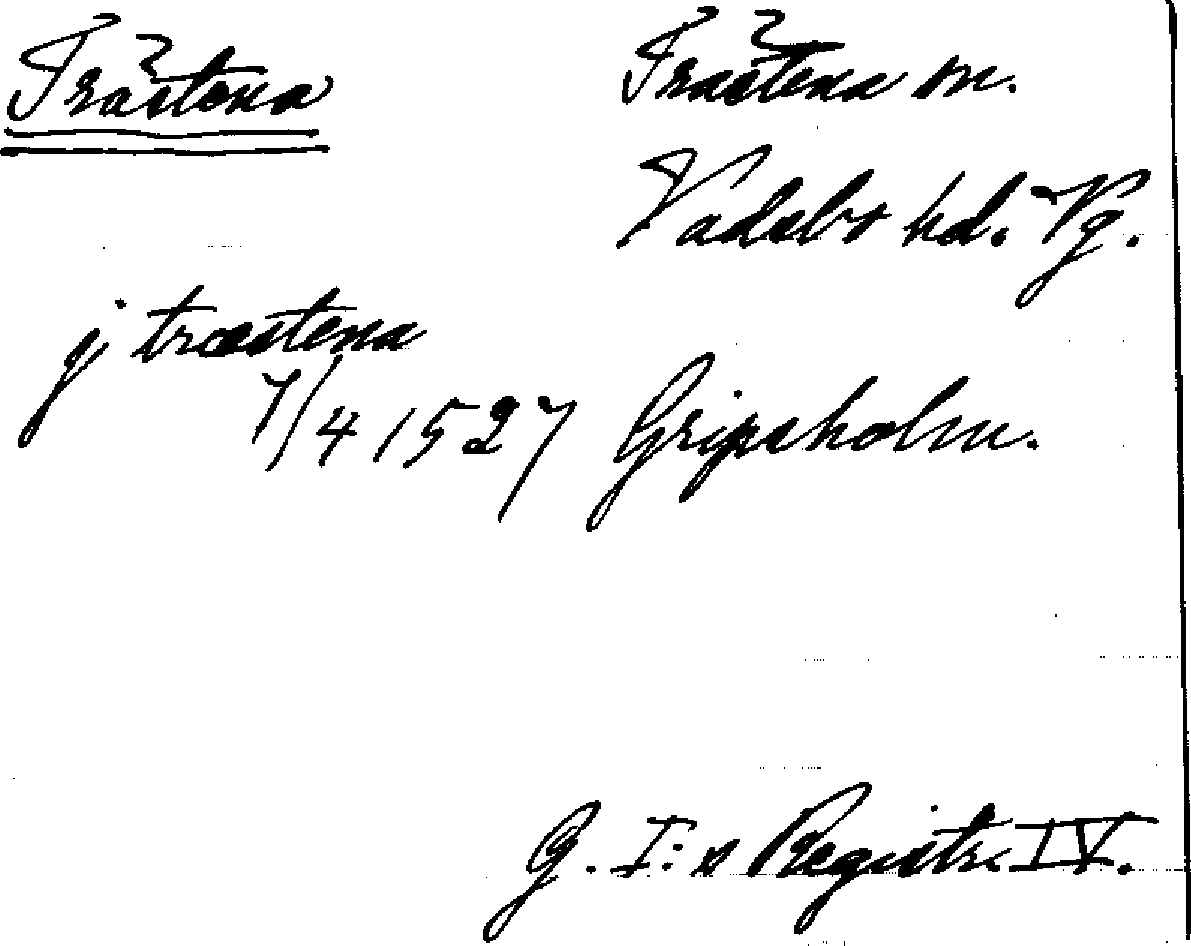 Träſtena
Träſtena sn.
Vadsbo hd. Vg.
j træstena
7/4 1527 Gripsholm.
G. I:s Registr. IV.